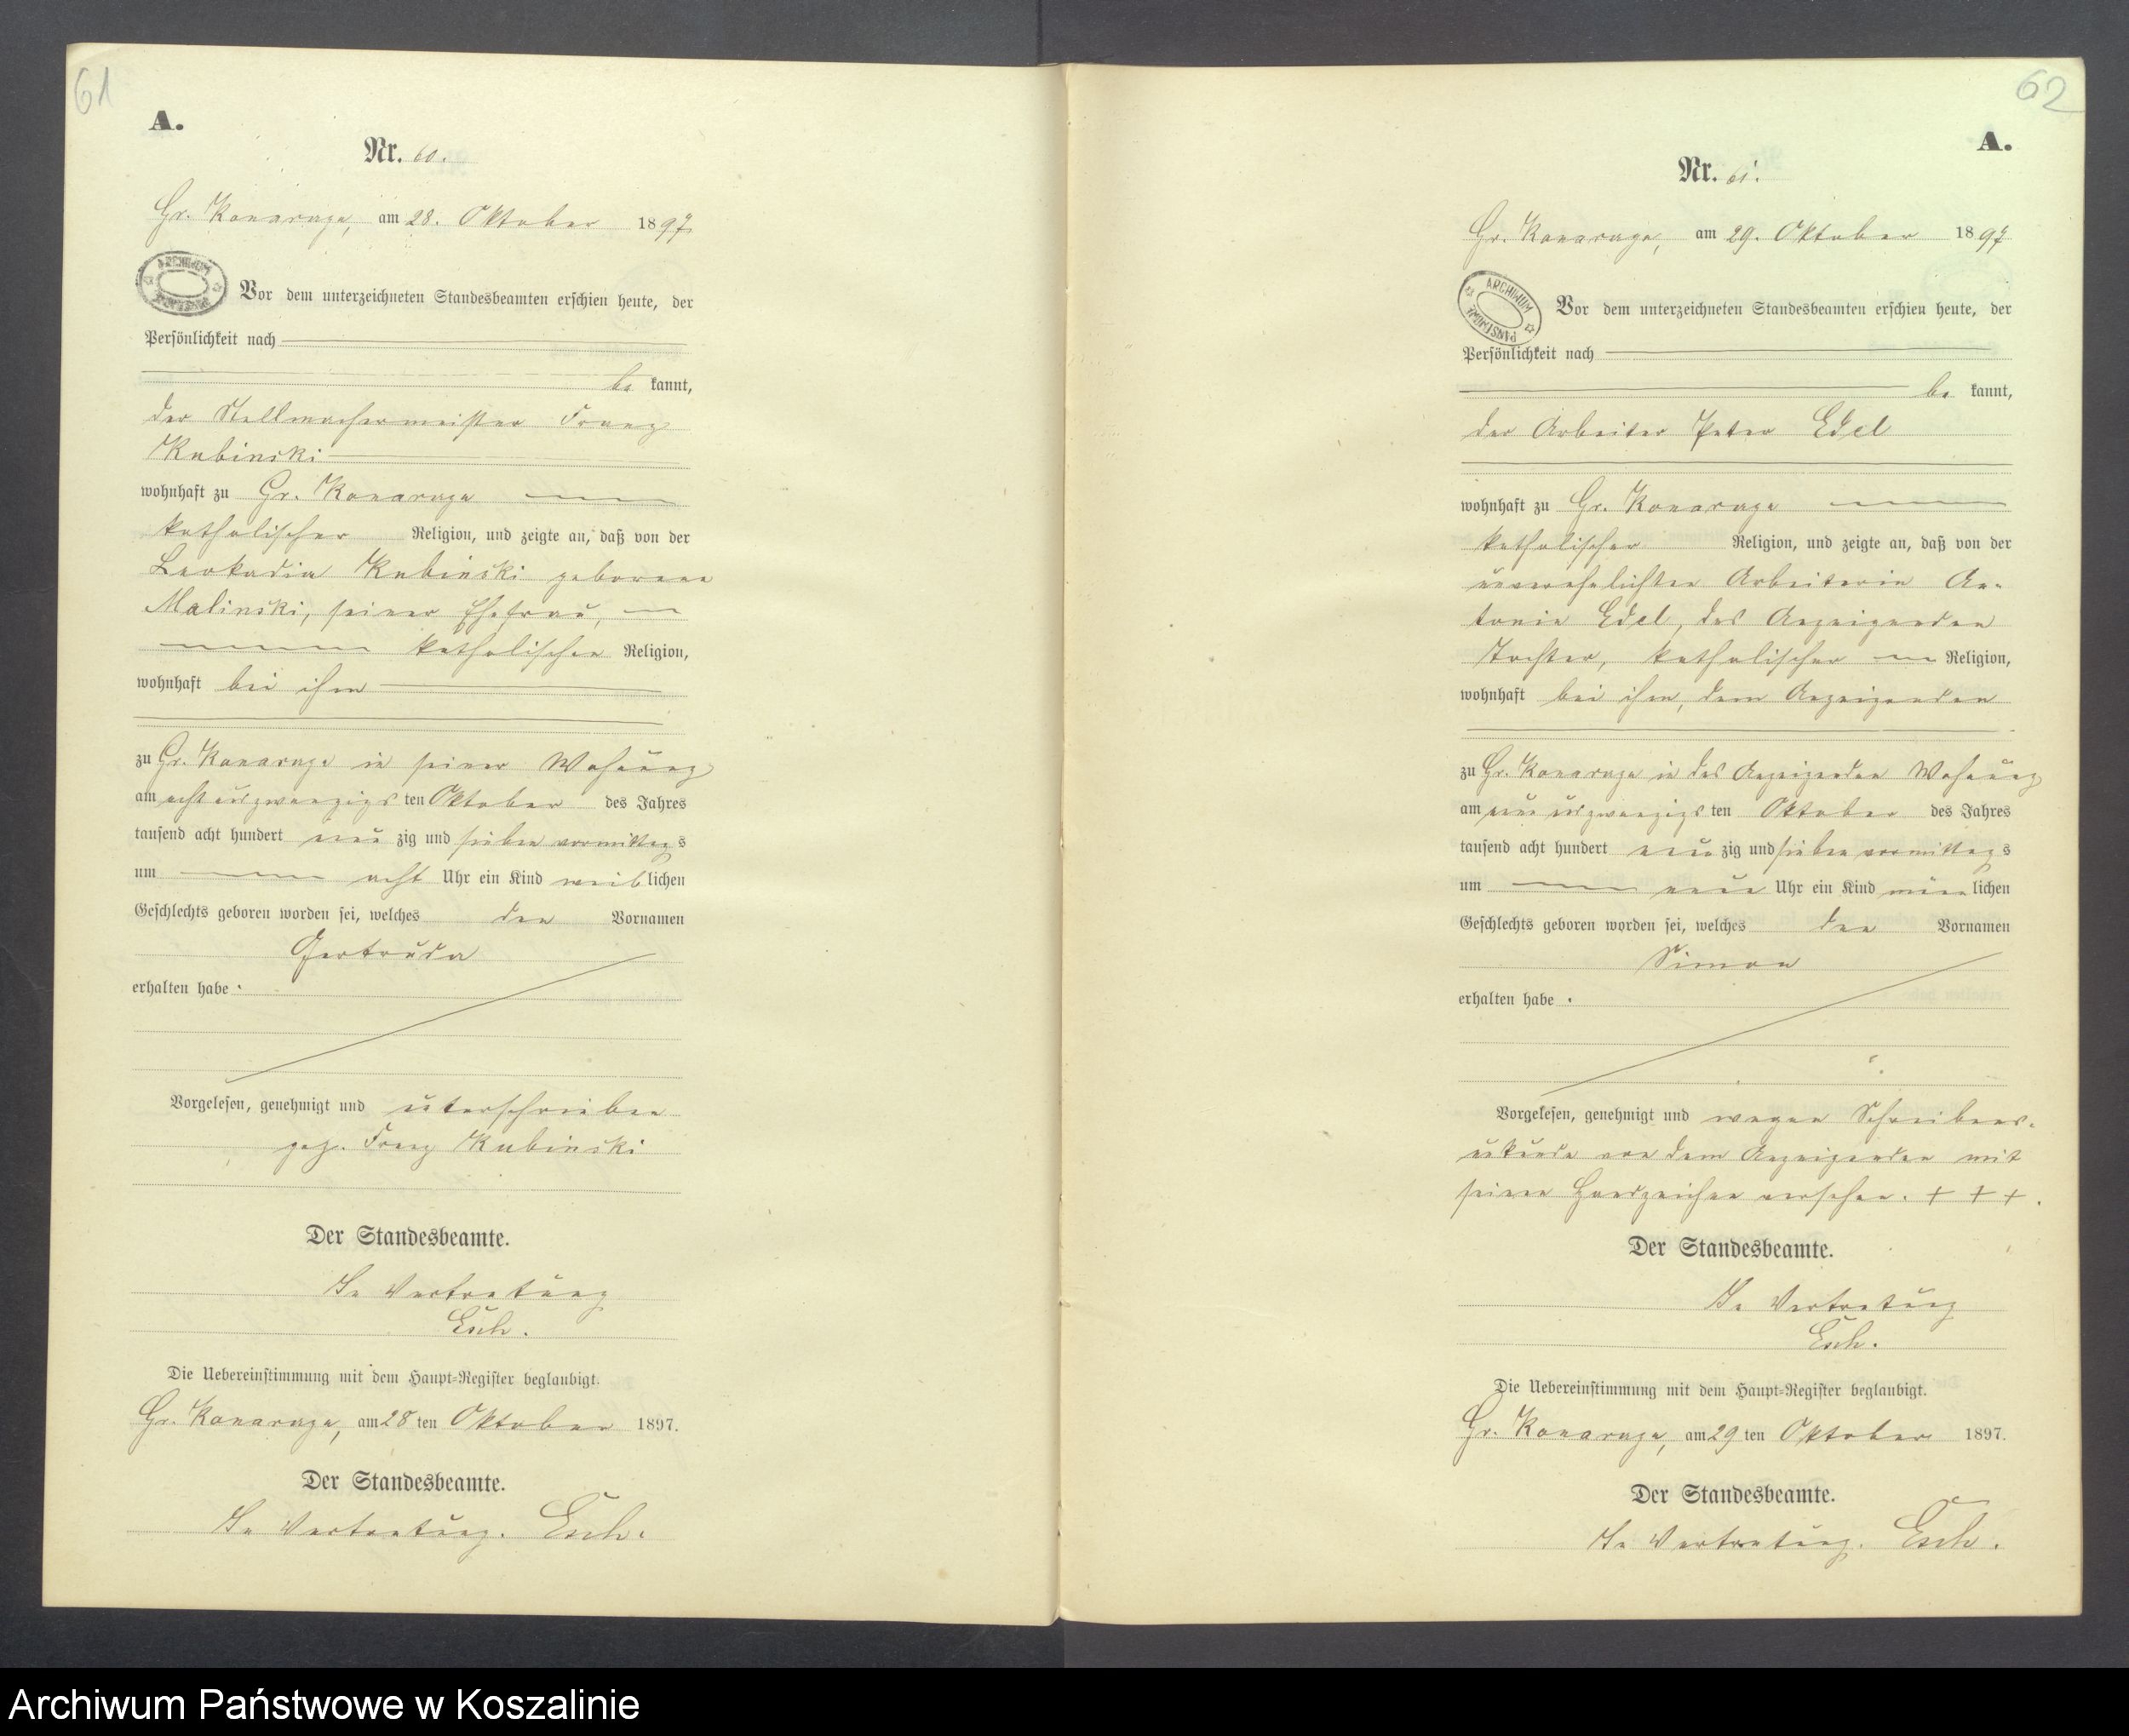 61
A.
Nr. 60.
Gr. Konarzyn, am 28. Oktober 1897
ARCHIWUM PAŃSTWOWE
Vor dem unterzeichneten Standesbeamten erschien heute, der
Persönlichkeit nach
be kannt,
der Stellmachermeister Franz
Kubinski
wohnhaft zu Gr. Konarzyn
katholischer Religion, und zeigte an, daß von der
Leokadia Kubinski geborene
Malinski, seiner Ehefrau,
katholischer Religion,
wohnhaft bei ihm
zu Gr. Konarzyn in seiner Wohnung
am acht und zwanzigs ten Oktober des Jahres
tausend acht hundert neun zig und sieben vormittag s
um acht Uhr ein Kind weib lichen
Geschlechts geboren worden sei, welches den Vornamen
Gertruda
erhalten habe.
Vorgelesen, genehmigt und unterschrieben
gez. Franz Kubinski
Der Standesbeamte.
In Vertretung
Esch.
Die Uebereinstimmung mit dem Haupt-Register beglaubigt.
Gr. Konarzyn, am 28 ten Oktober 1897.
Der Standesbeamte.
In Vertretung. Esch.
62
A.
Nr. 61.
Gr. Konarzyn, am 29. Oktober 1897
ARCHIWUM PAŃSTWOWE
Vor dem unterzeichneten Standesbeamten erschien heute, der
Persönlichkeit nach
be kannt,
der Arbeiter Peter Edel
wohnhaft zu Gr. Konarzyn
katholischer Religion, und zeigte an, daß von der
unverehelichten Arbeiterin An-
tonie Edel, des Anzeigenden
Tochter, katholischer Religion,
wohnhaft bei ihm, dem Anzeigenden
zu Gr. Konarzyn in des Anzeigenden Wohnung
am neun und zwanzigs ten Oktober des Jahres
tausend acht hundert neun zig und sieben vormittag s
um neun Uhr ein Kind männ lichen
Geschlechts geboren worden sei, welches den Vornamen
Simon
erhalten habe.
Vorgelesen, genehmigt und wegen Schreibens-
unkunde von dem Anzeigenden mit
seinen Handzeichen versehen. + + +.
Der Standesbeamte.
In Vertretung
Esch.
Die Uebereinstimmung mit dem Haupt-Register beglaubigt.
Gr. Konarzyn, am 29 ten Oktober 1897.
Der Standesbeamte.
In Vertretung. Esch.
Archiwum Państwowe w Koszalinie